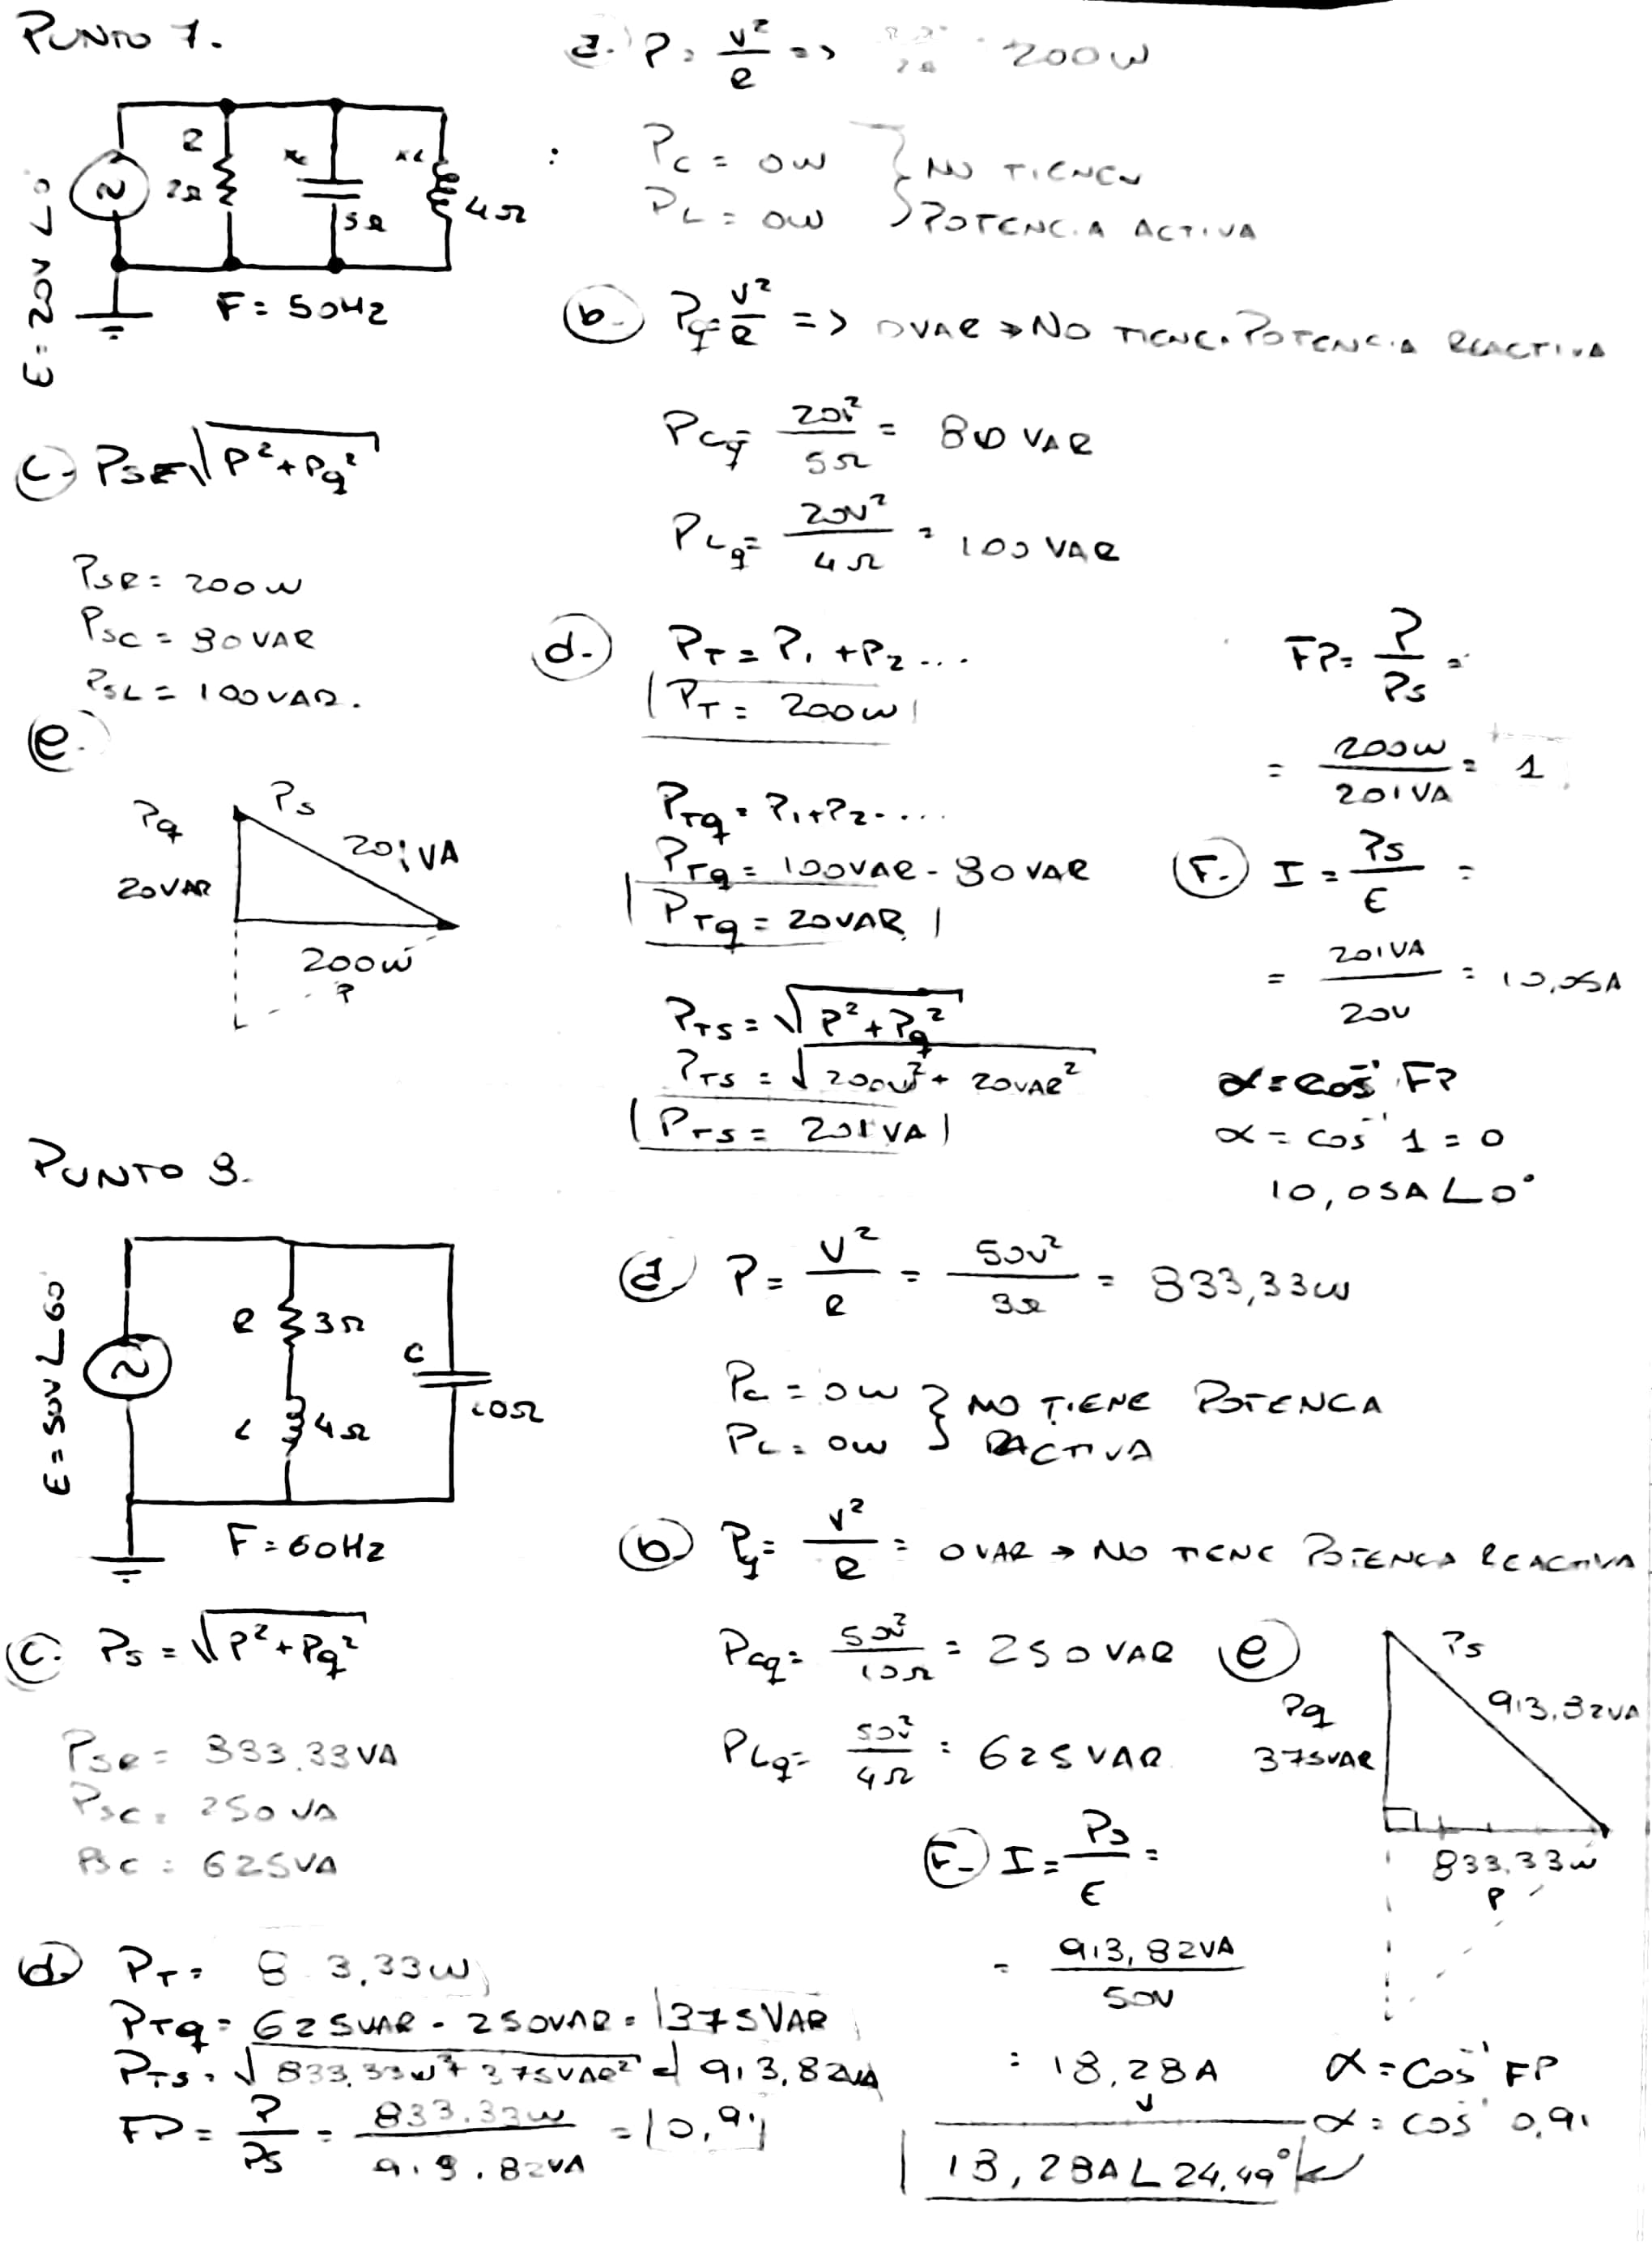 PUNTO 7.
a. P = V²/R => 200W
R 2Ω
XC 5Ω
XL 4Ω
E = 20V ∠0
F = 50Hz
PC = 0W } NO TIENEN
PL = 0W } POTENCIA ACTIVA
b. Pq = V²/R => 0VAR → NO TIENE POTENCIA REACTIVA
PCq = 20V²/5Ω = 80 VAR
PLq = 20V²/4Ω = 100 VAR
c. PS = √P² + Pq²
PSR = 200W
PSC = 80VAR
PSL = 100VAR.
d. PT = P1 + P2 ...
PT = 200W
PTq = P1 + P2 ....
PTq = 100VAR - 80VAR
PTq = 20VAR
PTS = √P² + Pq²
PTS = √200W² + 20VAR²
PTS = 201VA
FP = P/PS =
= 200W/201VA = 1
e.
Pq
20VAR
PS
201VA
200W
P
F. I = PS/E =
= 201VA/20V = 10,05A
α = cos⁻¹ FP
α = cos⁻¹ 1 = 0
10,05A ∠0°
PUNTO 8.
E = 50V ∠60
R 3Ω
L 4Ω
C 10Ω
F = 60Hz
a. P = V²/R = 50V²/3Ω = 833,33W
PC = 0W } NO TIENE POTENCA
PL = 0W } RACTIVA
b. Pq = V²/R = 0VAR → NO TIENE POTENCA REACTIVA
PCq = 50V²/10Ω = 250VAR
PLq = 50V²/4Ω = 625VAR
c. PS = √P² + Pq²
PSR = 833.33VA
PSC = 250VA
PSC = 625VA
d. PT = 8 3,33W
PTq = 625VAR - 250VAR = 375VAR
PTS = √833,33W² + 375VAR² = 913,82VA
FP = P/PS = 833.33W/913.82VA = 0,91
e
PS
913,82VA
Pq
375VAR
833.33W
P
F. I = PS/E =
= 913,82VA/50V
= 18,28A
α = cos⁻¹ FP
α = cos⁻¹ 0,91
18,28A ∠24,49°